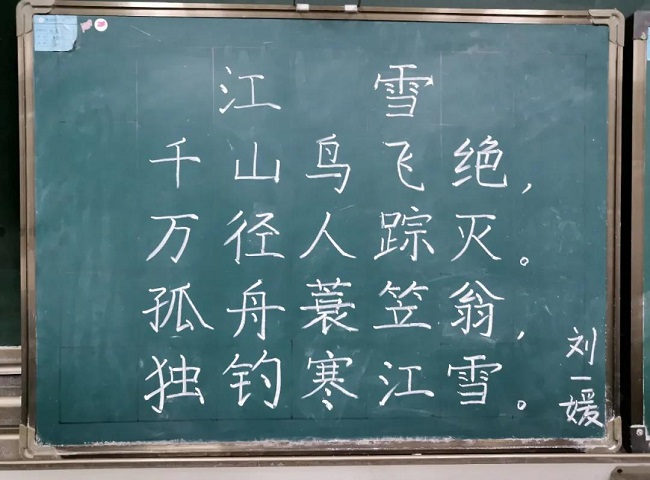 江雪
千山鸟飞绝，
万径人踪灭。
孤舟蓑笠翁，
独钓寒江雪。
刘一媛